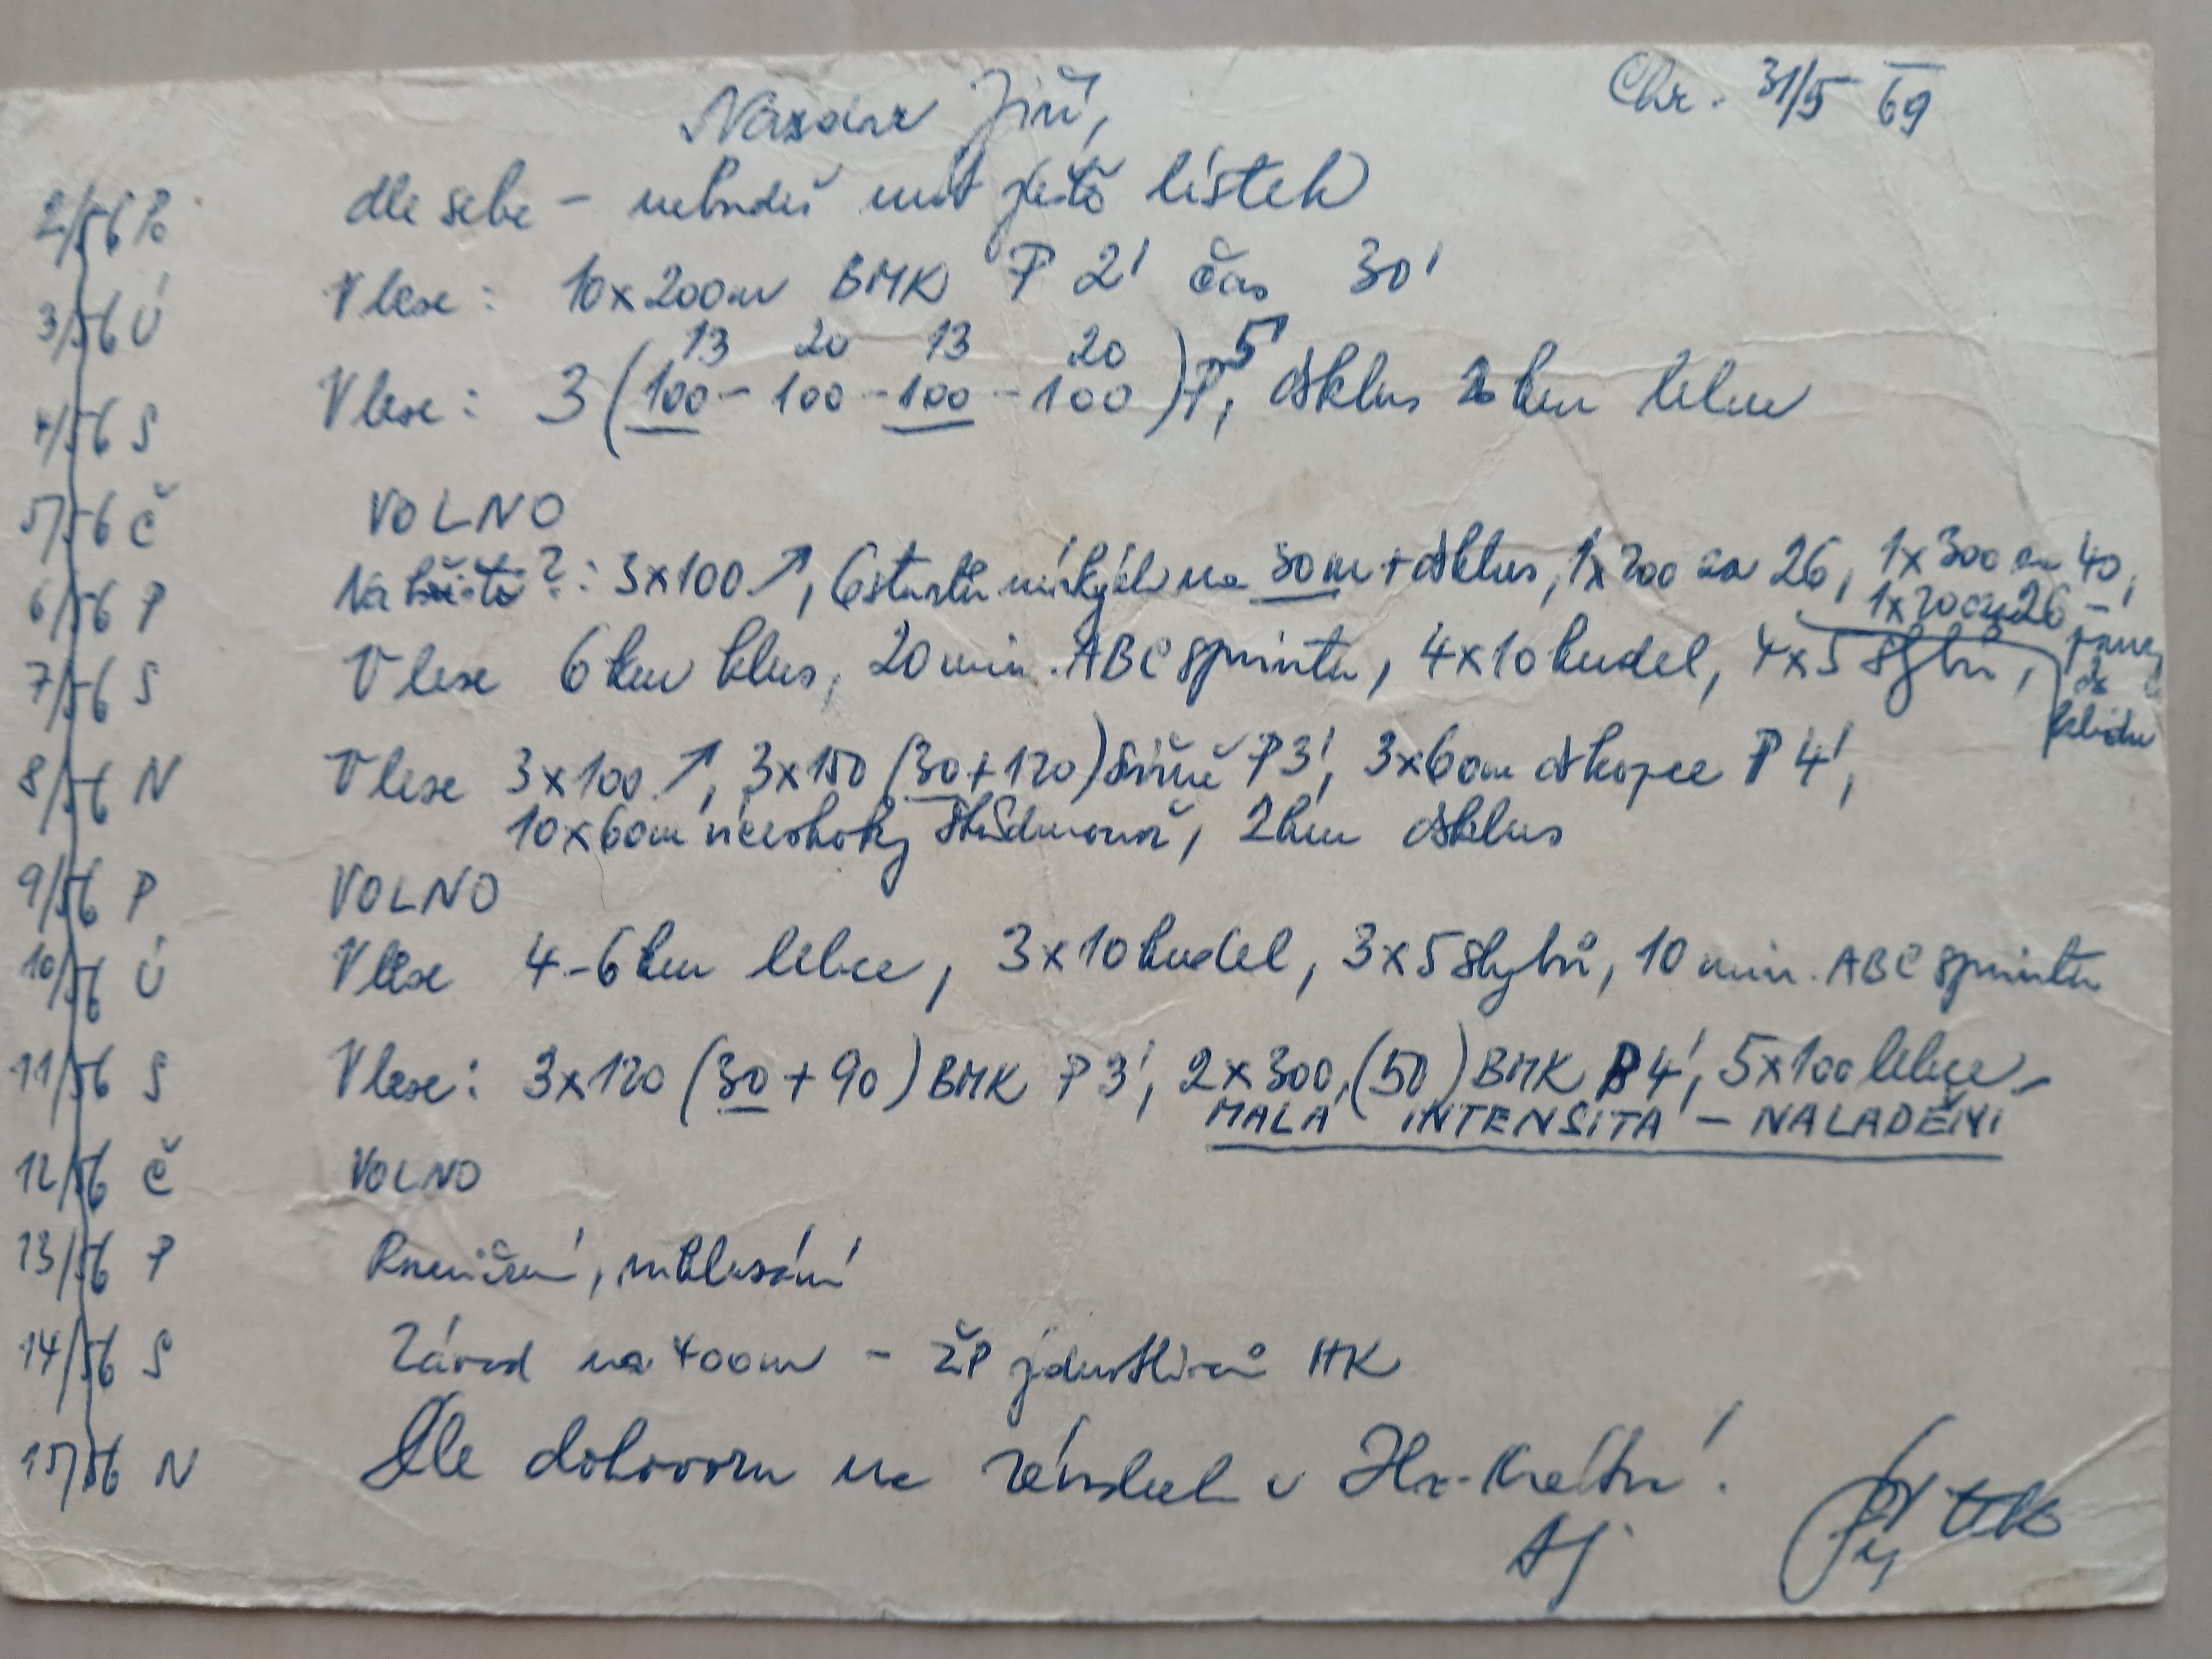 Nazdar Jiří, Chr. 31/5 69
2/6 Po dle sebe - nebudeš mít ještě lístek
3/6 Ú V lese: 10x200m BMK P 2' čas 30'
13 20 13 20
4/6 S V lese: 3 (100 - 100 - 100 - 100) P 5', sklus 2 km lehce
5/6 Č VOLNO
6/6 P Na hřišti?: 3x100 ↗, 6 startů nízkých na 30m + sklus, 1x200 za 26, 1x300 za 40,
1x200 za 26 -
7/6 S V lese 6 km klus, 20 min. ABC sprintu, 4x10 kudel, 4x5 shybů,
do
klidu
8/6 N V lese 3x100 ↗, 3x150 (30+120) svižně P 3', 3x60m do kopce P 4',
10x60m víceskoky střídnonož, 2 km sklus
9/6 P VOLNO
10/6 Ú V lese 4-6 km lehce, 3x10 kudel, 3x5 shybů, 10 min. ABC sprintu
11/6 S V lese: 3x120 (30 + 90) BMK P 3', 2x300, (50) BMK P 4', 5x100 lehce -
MALÁ INTENSITA - NALADĚNÍ
12/6 Č VOLNO
13/6 P Rozcvičení, vyklusání
14/6 S Závod na 400m - ŽP jednotlivců HK
15/6 N Dle dohovoru na závodech v Hr. Králové!
Aj